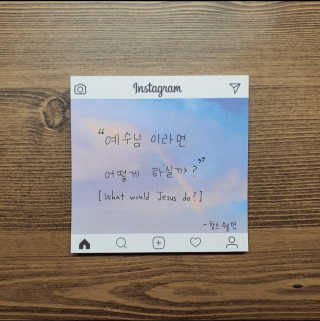 Instagram
“예수님 이라면
어떻게 하실까?”
[What would Jesus do?]